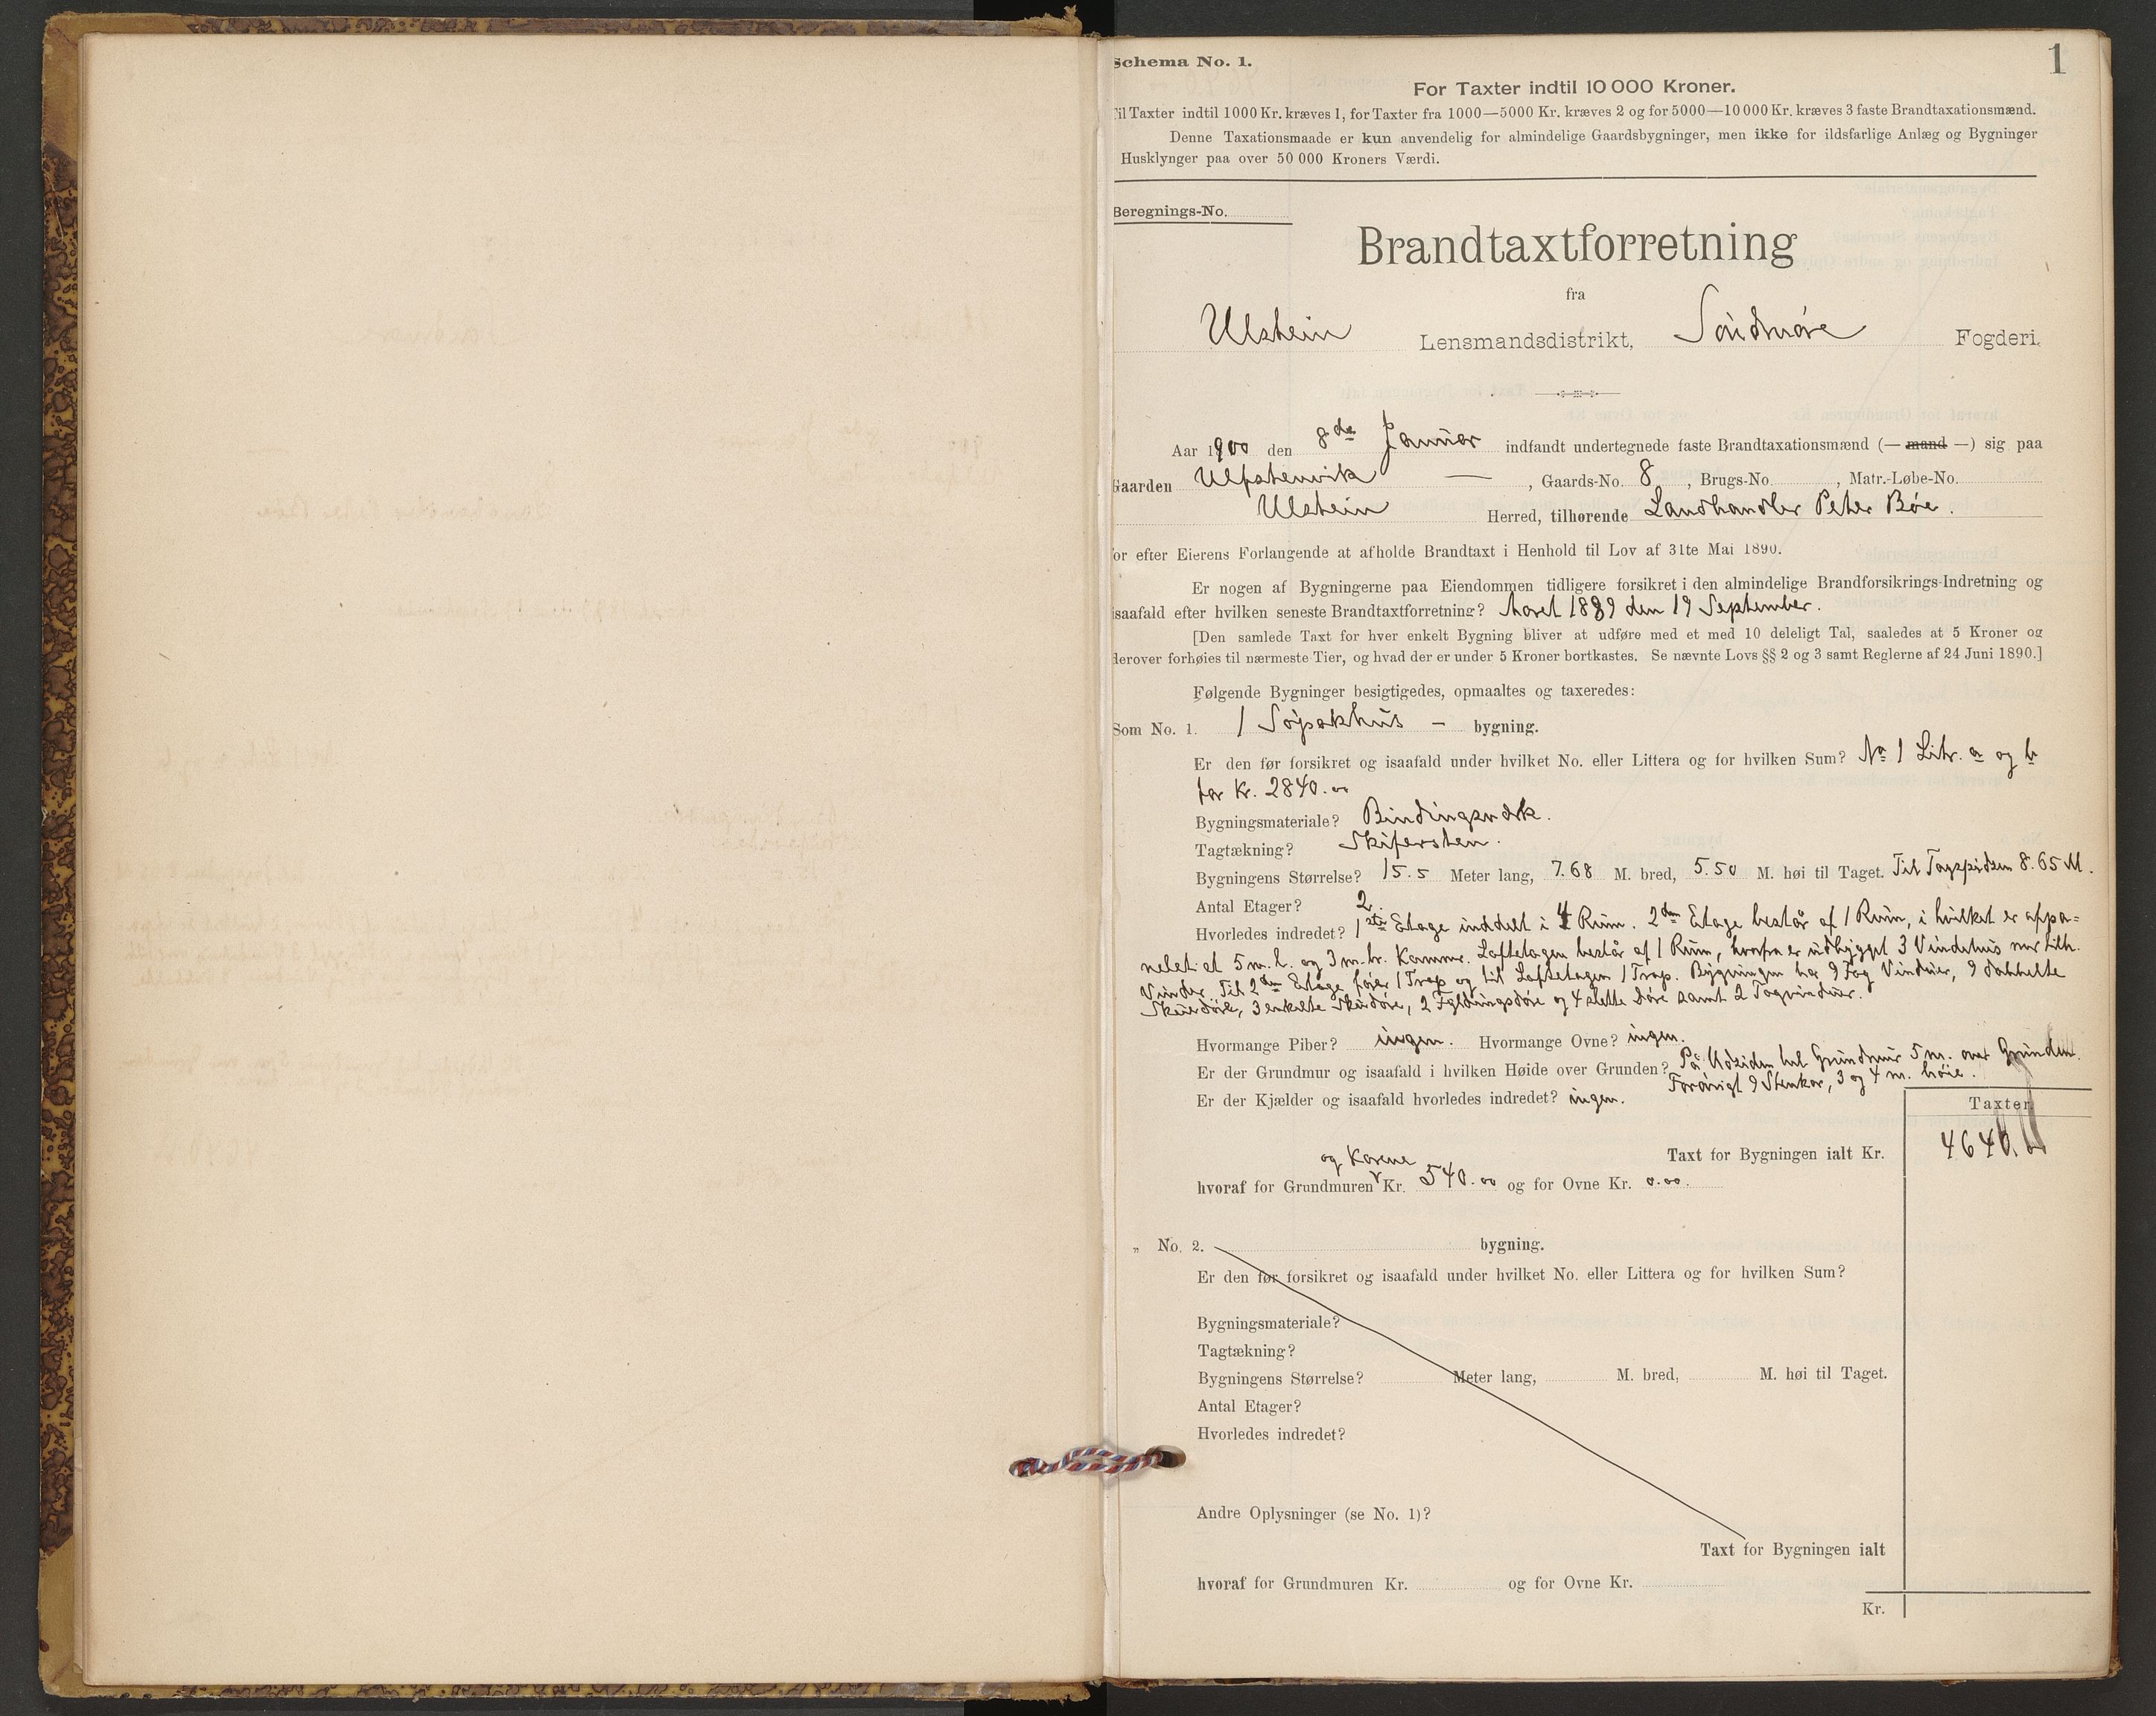 1
Schema No. 1.
For Taxter indtil 10 000 Kroner.
Til Taxter indtil 1000 Kr. kræves 1, for Taxter fra 1000—5000 Kr. kræves 2 og for 5000—10 000 Kr. kræves 3 faste Brandtaxationsmænd.
Denne Taxationsmaade er kun anvendelig for almindelige Gaardsbygninger, men ikke for ildsfarlige Anlæg og Bygninger
Husklynger paa over 50 000 Kroners Værdi.
Beregnings-No.
Brandtaxtforretning
fra
Ulstein Lensmandsdistrikt, Söndmöre Fogderi.
Aar 1900 den 8de Januar indfandt undertegnede faste Brandtaxationsmænd (— mand —) sig paa
Gaarden Ulfstenvik — , Gaards-No. 8 , Brugs-No. , Matr.-Løbe-No.
Ulstein Herred, tilhørende Landhandler Peter Böe.
for efter Eierens Forlangende at afholde Brandtaxt i Henhold til Lov af 31te Mai 1890.
Er nogen af Bygningerne paa Eiendommen tidligere forsikret i den almindelige Brandforsikrings-Indretning og
isaafald efter hvilken seneste Brandtaxtforretning? Aaret 1889 den 19 September.
[Den samlede Taxt for hver enkelt Bygning bliver at udføre med et med 10 deleligt Tal, saaledes at 5 Kroner og
derover forhøies til nærmeste Tier, og hvad der er under 5 Kroner bortkastes. Se nævnte Lovs §§ 2 og 3 samt Reglerne af 24 Juni 1890.]
Følgende Bygninger besigtigedes, opmaaltes og taxeredes:
Som No. 1. 1 Söpakhus – bygning.
Er den før forsikret og isaafald under hvilket No. eller Littera og for hvilken Sum? No 1 Litr. a og b
for Kr. 2840.00
Bygningsmateriale? Bindingsværk.
Tagtækning? Skifersten.
Bygningens Størrelse? 15.5 Meter lang, 7.68 M. bred, 5.50 M. høi til Taget. Til Tagspidsen 8.65 M.
Antal Etager? 2.
Hvorledes indredet? 1ste Etage inddelt i 4 Rum. 2den Etage består af 1 Rum, i hvilket er afpa=
nelet et 5 m. l. og 3 m. br. Kammer. Loftetagen består af 1 Rum, hvorfra er udbygget 3 Vindehus med tilh.
Vinder. Til 2den Etage fører 1 Trap og til Loftetagen 1 Trap. Bygningen har 9 Fag Vinduer, 9 dobbelte
3 enkelte 2 Fyldningsdöre og 4 slette Döre samt 2 Tagvinduer.
Hvormange Piber? ingen. Hvormange Ovne? ingen.
Er der Grundmur og isaafald i hvilken Høide over Grunden? På Udsiden hel Grundmur 5 m. over Grunden.
Forövrigt 9 Stenkar, 3 og 4 m. höie.
Er der Kjælder og isaafald hvorledes indredet? ingen.
Taxter.
Taxt for Bygningen ialt Kr. 4640.00
og Karene
hvoraf for Grundmuren Kr. 540.00 og for Ovne Kr. 0.00.
„ No. 2. bygning.
Er den før forsikret og isaafald under hvilket No. eller Littera og for hvilken Sum?
Bygningsmateriale?
Tagtækning?
Bygningens Størrelse? Meter lang, M. bred, M. høi til Taget.
Antal Etager?
Hvorledes indredet?
Andre Oplysninger (se No. 1)?
Taxt for Bygningen ialt
hvoraf for Grundmuren Kr. og for Ovne Kr.
Kr.